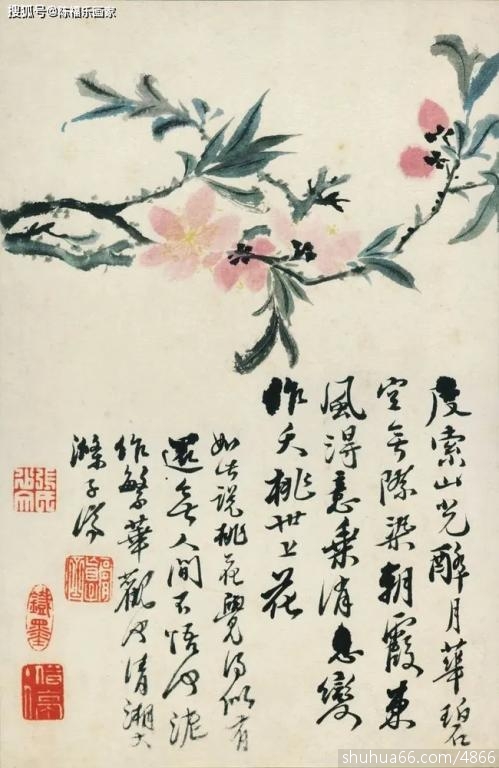 搜狐号@陈福乐画家
度索山光醉月華碧
空無際染朝霞東
風得意乘消息變
作夭桃世上花
如此說桃花覺得似有
還無人間不悟何泥
作繁華觀也清湘大
滌子
shuhua66.com/4866